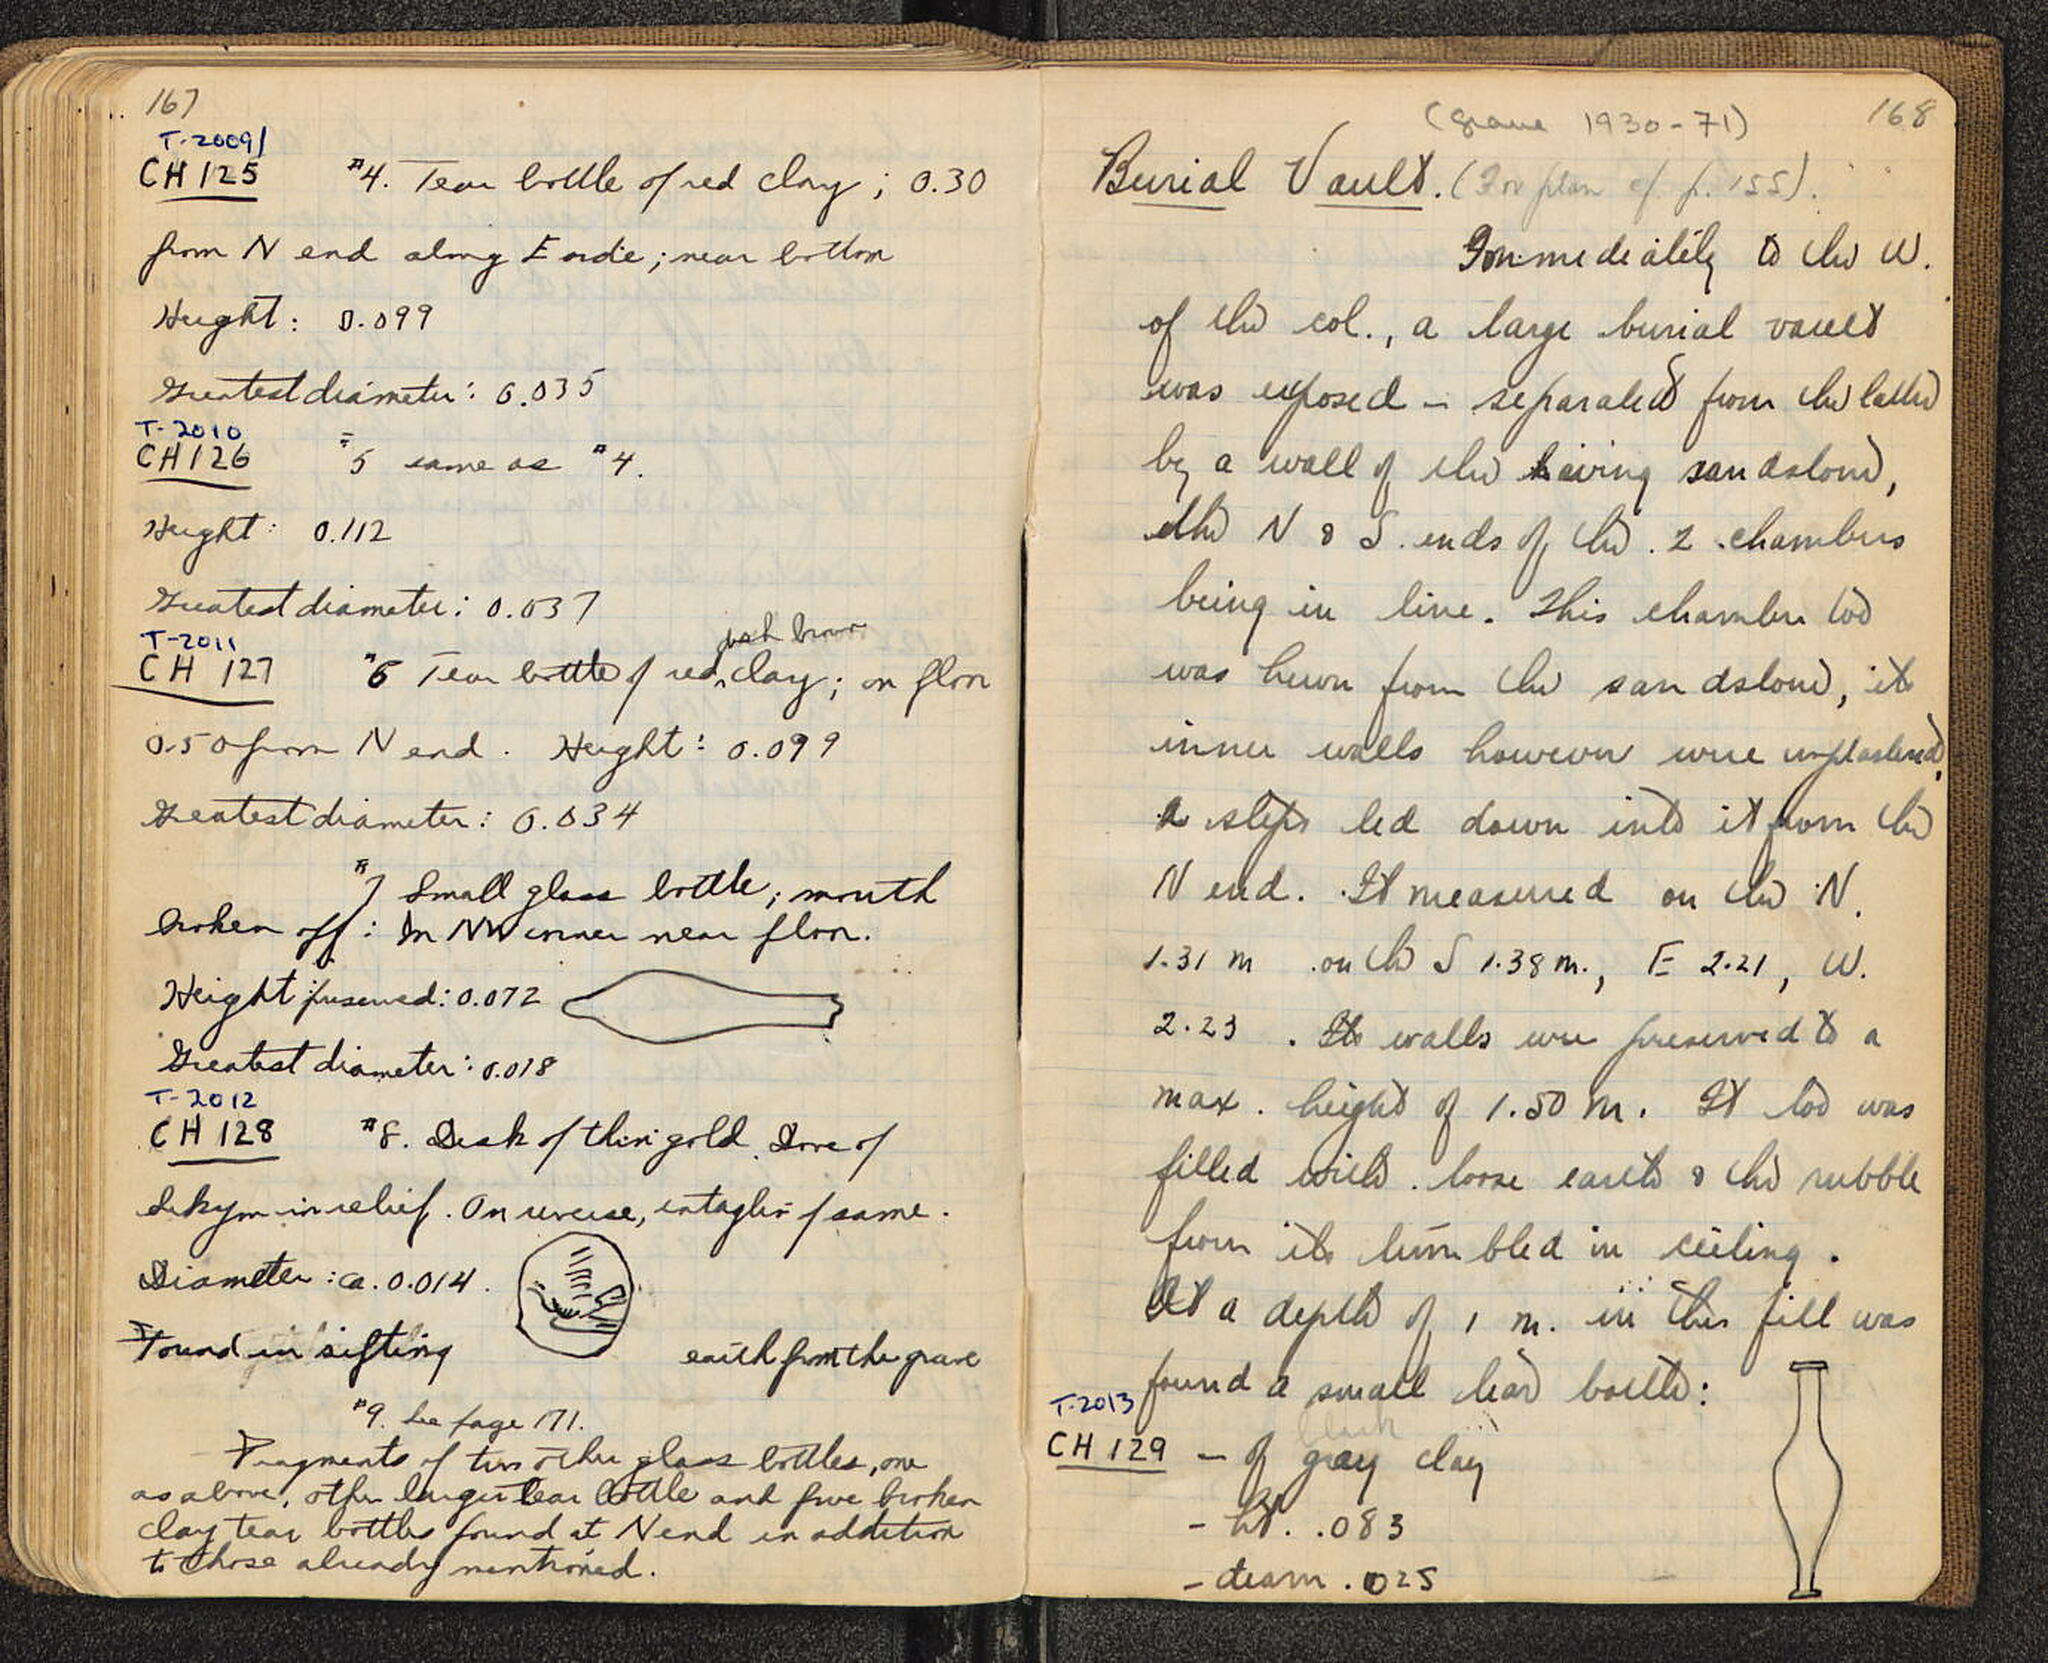 167
T-2009/
CH 125 #4. Tear bottle of red clay; 0.30
from N end along E side; near bottom
Height: 0.099
Greatest diameter: 0.035
T-2010
CH 126 #5 same as #4.
Height: 0.112
Greatest diameter: 0.037
T-2011
CH 127 #6 Tear bottle of red clay; on floor
0.50 from N end. Height: 0.099
Greatest diameter: 0.034
#7 Small glass bottle; mouth
broken off: In NW corner near floor.
Height preserved: 0.072
Greatest diameter: 0.018
T-2012
CH 128 #8. Disk of thin gold. Dove of
Sikyon in relief. On reverse, intaglio of same.
Diameter: ca. 0.014.
Found in sifting earth from the grave
#9. See page 171.
Fragments of two other glass bottles, one
as above, other larger tear bottle and five broken
clay tear bottles found at N end in addition
to those already mentioned.
168
(Grave 1930-71)
Burial Vault. (For plan cf. p. 155).
Immediately to the W.
of the col., a large burial vault
was exposed - separated from the latter
by a wall of the living sandstone,
the N & S. ends of the 2 chambers
being in line. This chamber too
was hewn from the sandstone, its
inner walls however were unplastered.
steps led down into it from the
N end. It measured on the N.
1.31 m on the S 1.38 m., E 2.21, W.
2.23. Its walls were preserved to a
max. height of 1.50 m. It too was
filled with loose earth & the rubble
from its tumbled in ceiling.
At a depth of 1 m. in this fill was
found a small tear bottle:
T-2013
black
CH 129 - of gray clay
- ht. .083
- diam. .025